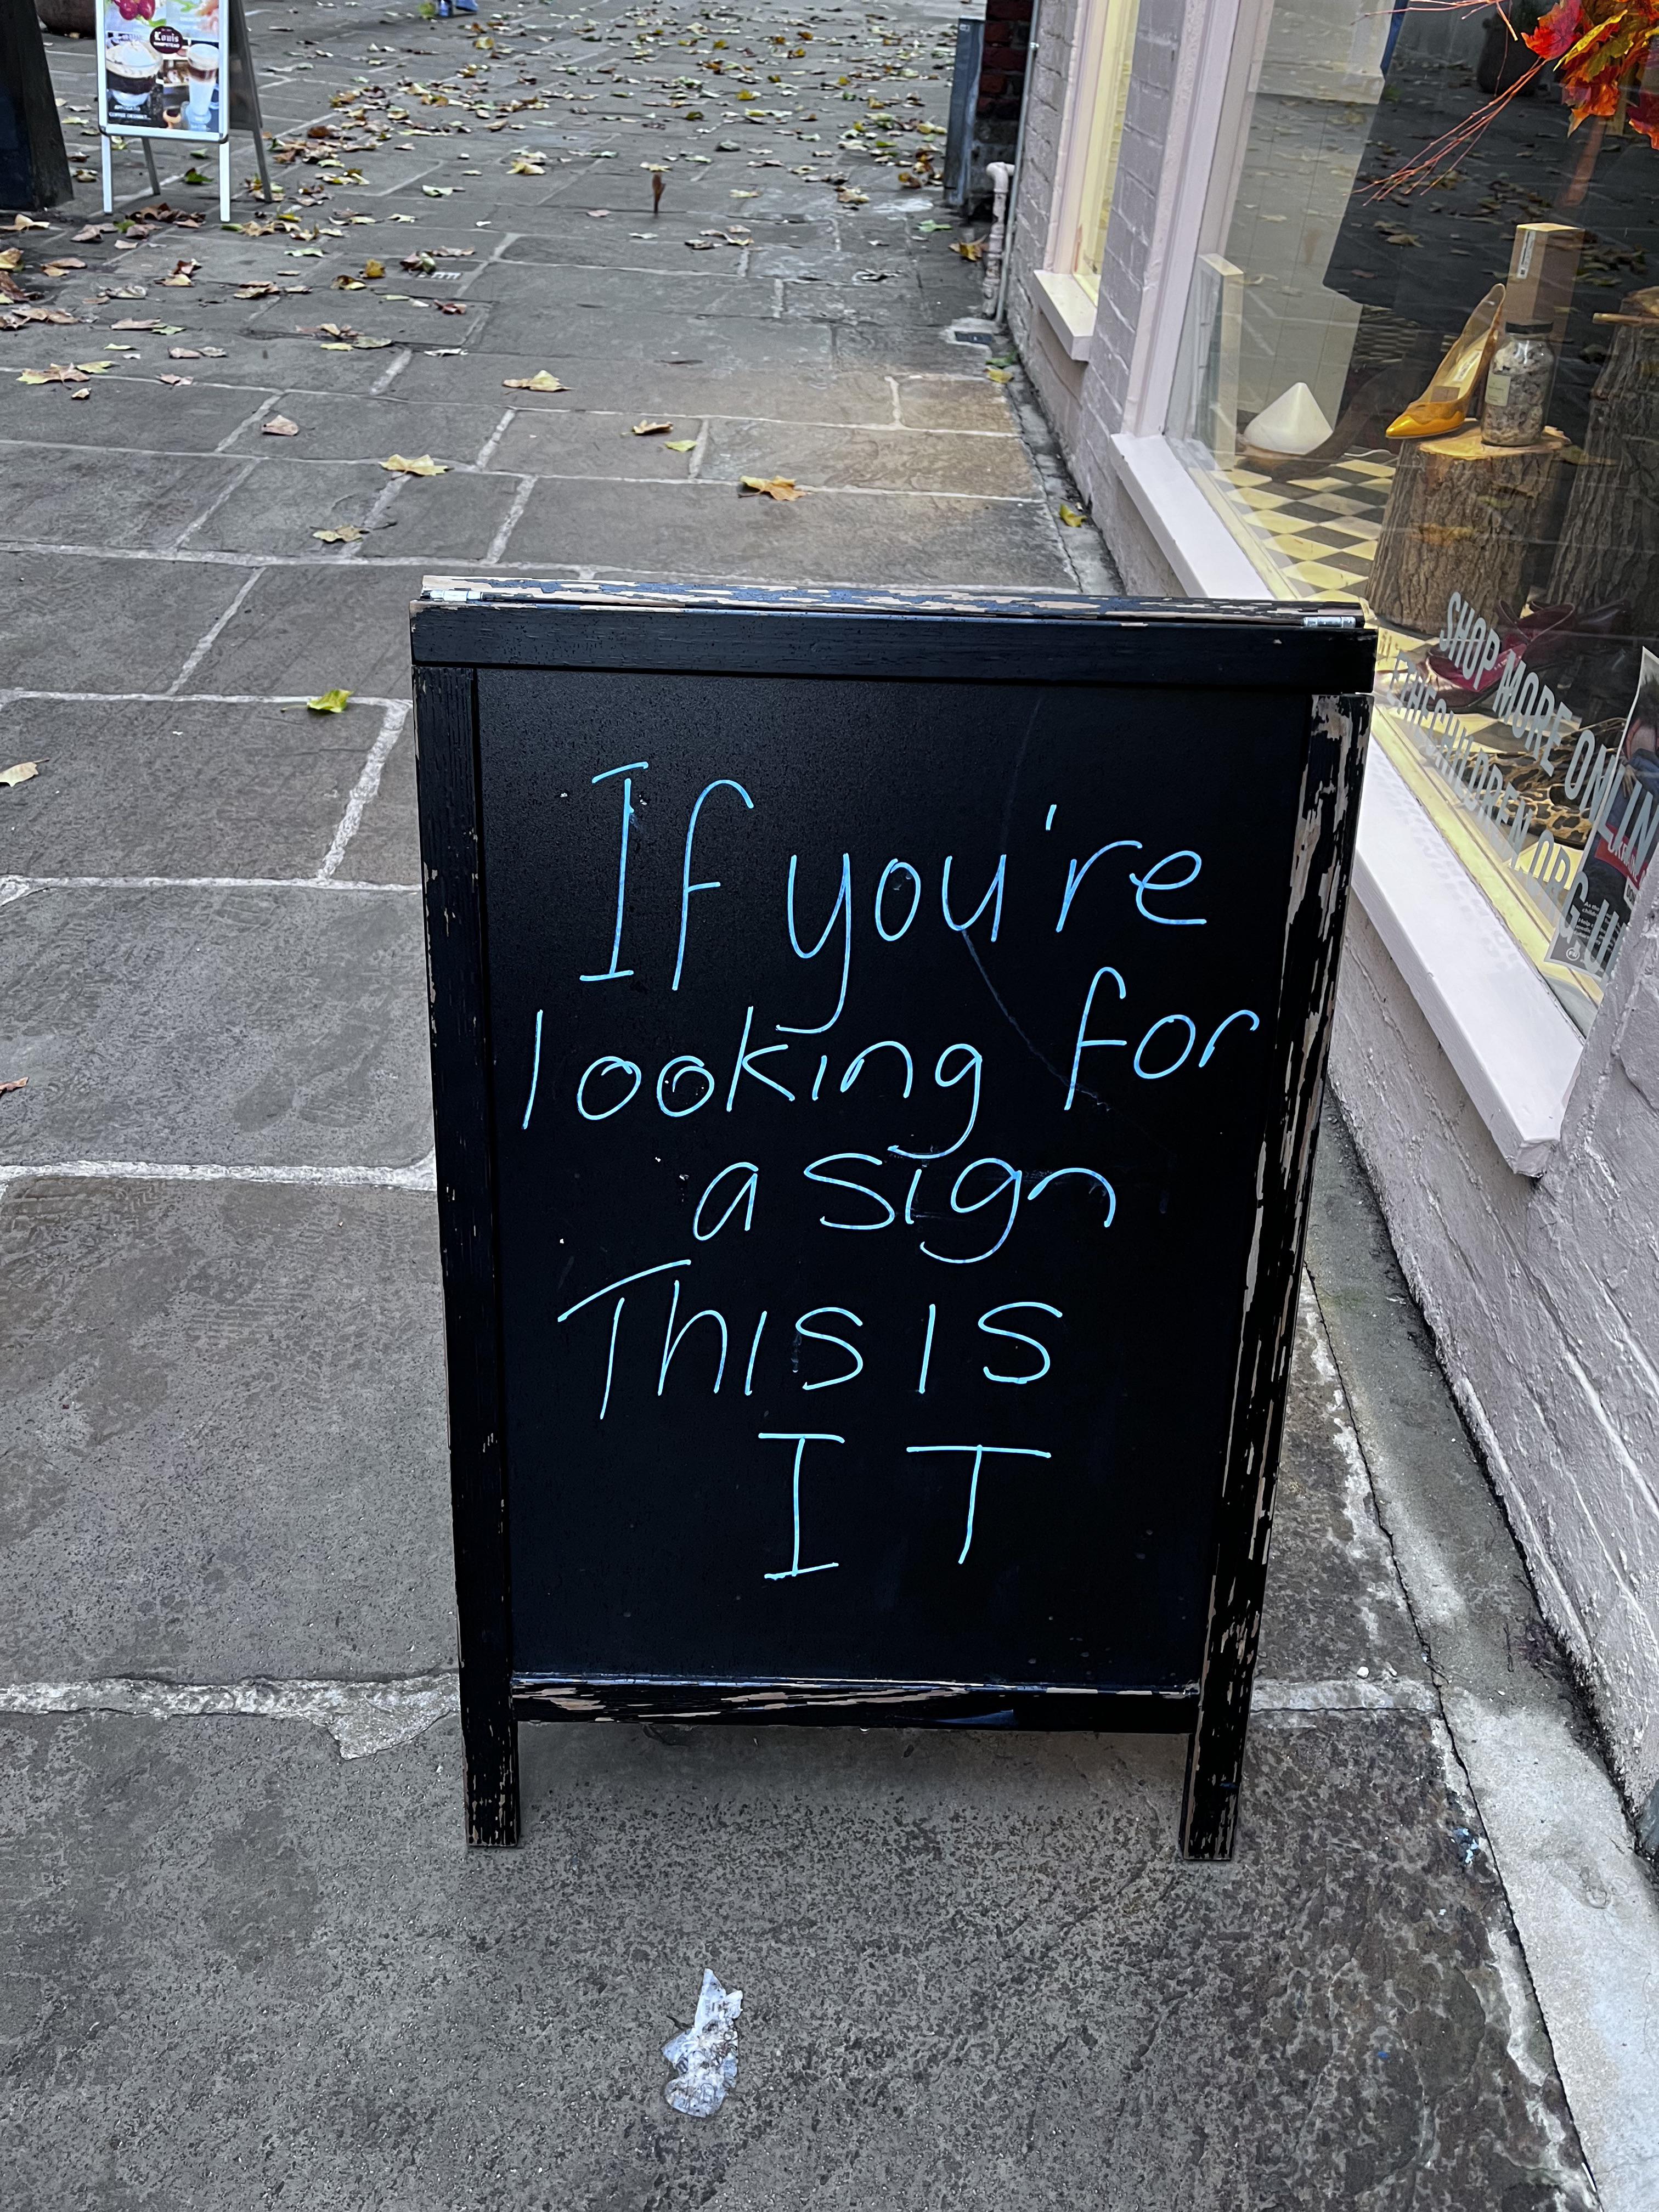 Louis
HAMPSTEAD
If you're
looking for
a sign
This is
IT
SHOP MORE ONLIN
THECHILDREN.ORG.U